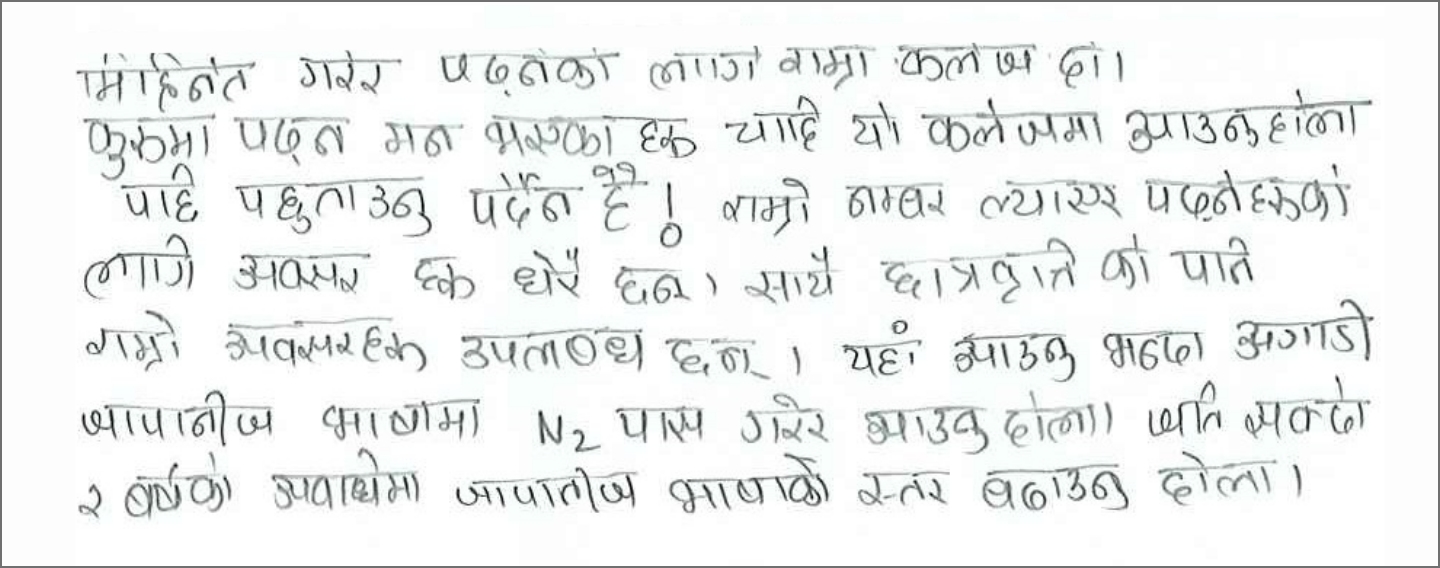 मिहिनेत गरेर पढ्नेको लागि राम्रो कलेज हो।
कुरुमा पढ्न मन भएका हरू चाहि यो कलेजमा आउनुहोला
पछि पछुताउनु पर्दैन है ! राम्रो नम्बर ल्याएर पढ्नेहरूको
लागि अवसर हरू धेरै छन्। साथै छात्रवृत्ति को पनि
राम्रो अवसरहरू उपलब्ध छन्। यहाँ आउनु भन्दा अगाडी
जापानीज भाषामा N2 पास गरेर आउनु होला। अनि सक्दो
२ बर्षको अवधिमा जापानीज भाषाको स्तर बढाउनु होला।